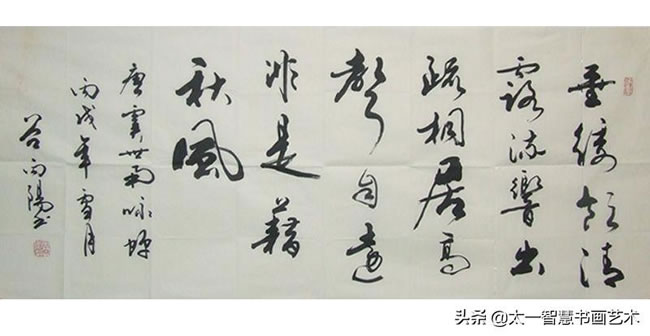 垂緌飲清
露流響出
疏桐居高
聲自遠
非是藉
秋風
唐虞世南詠蟬
丙戌年雪月
谷向陽书
头条 @太一智慧书画艺术